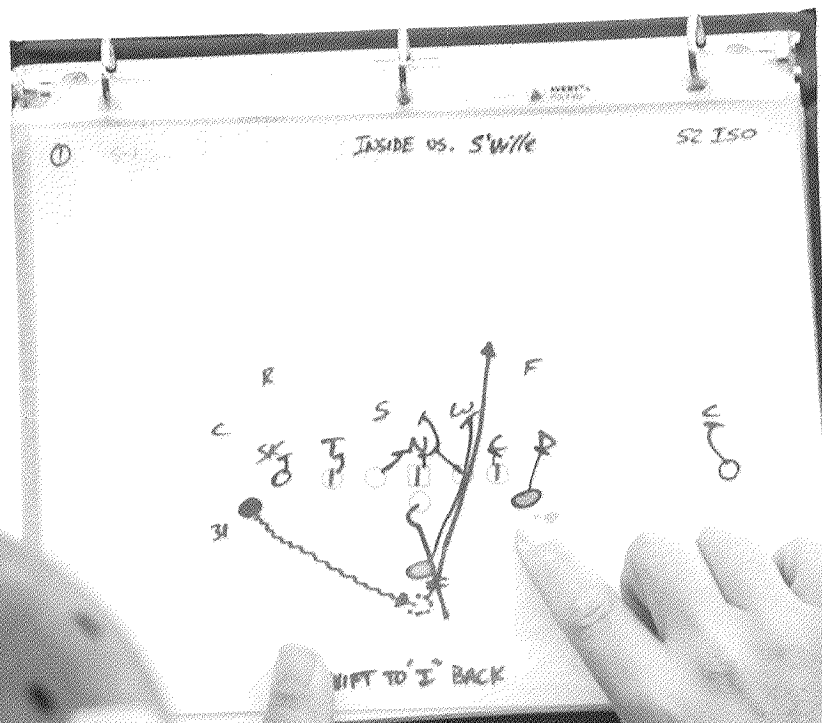 AVERY
①
INSIDE VS. S'Wille
52 ISO
R
F
S
W
C
C
SK
T
N
E
R
31
HIFT TO "I" BACK